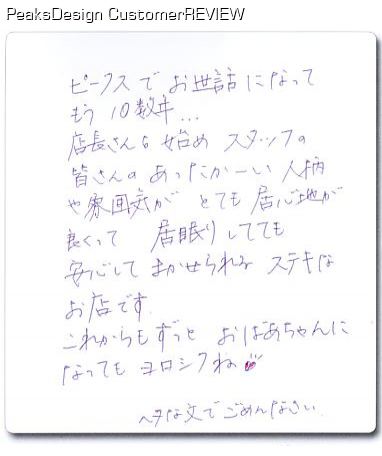 PeaksDesign CustomerREVIEW
ピークスで お世話になって
もう 10数年...
店長さんを始め スタッフの
皆さんの あったかーい 人柄
や雰囲気が とても 居心地が
良くって 居眠りしてても
安心して まかせられる ステキな
お店です
これからもずっと おばあちゃんに
なっても ヨロシクね
ヘタな文でごめんなさい